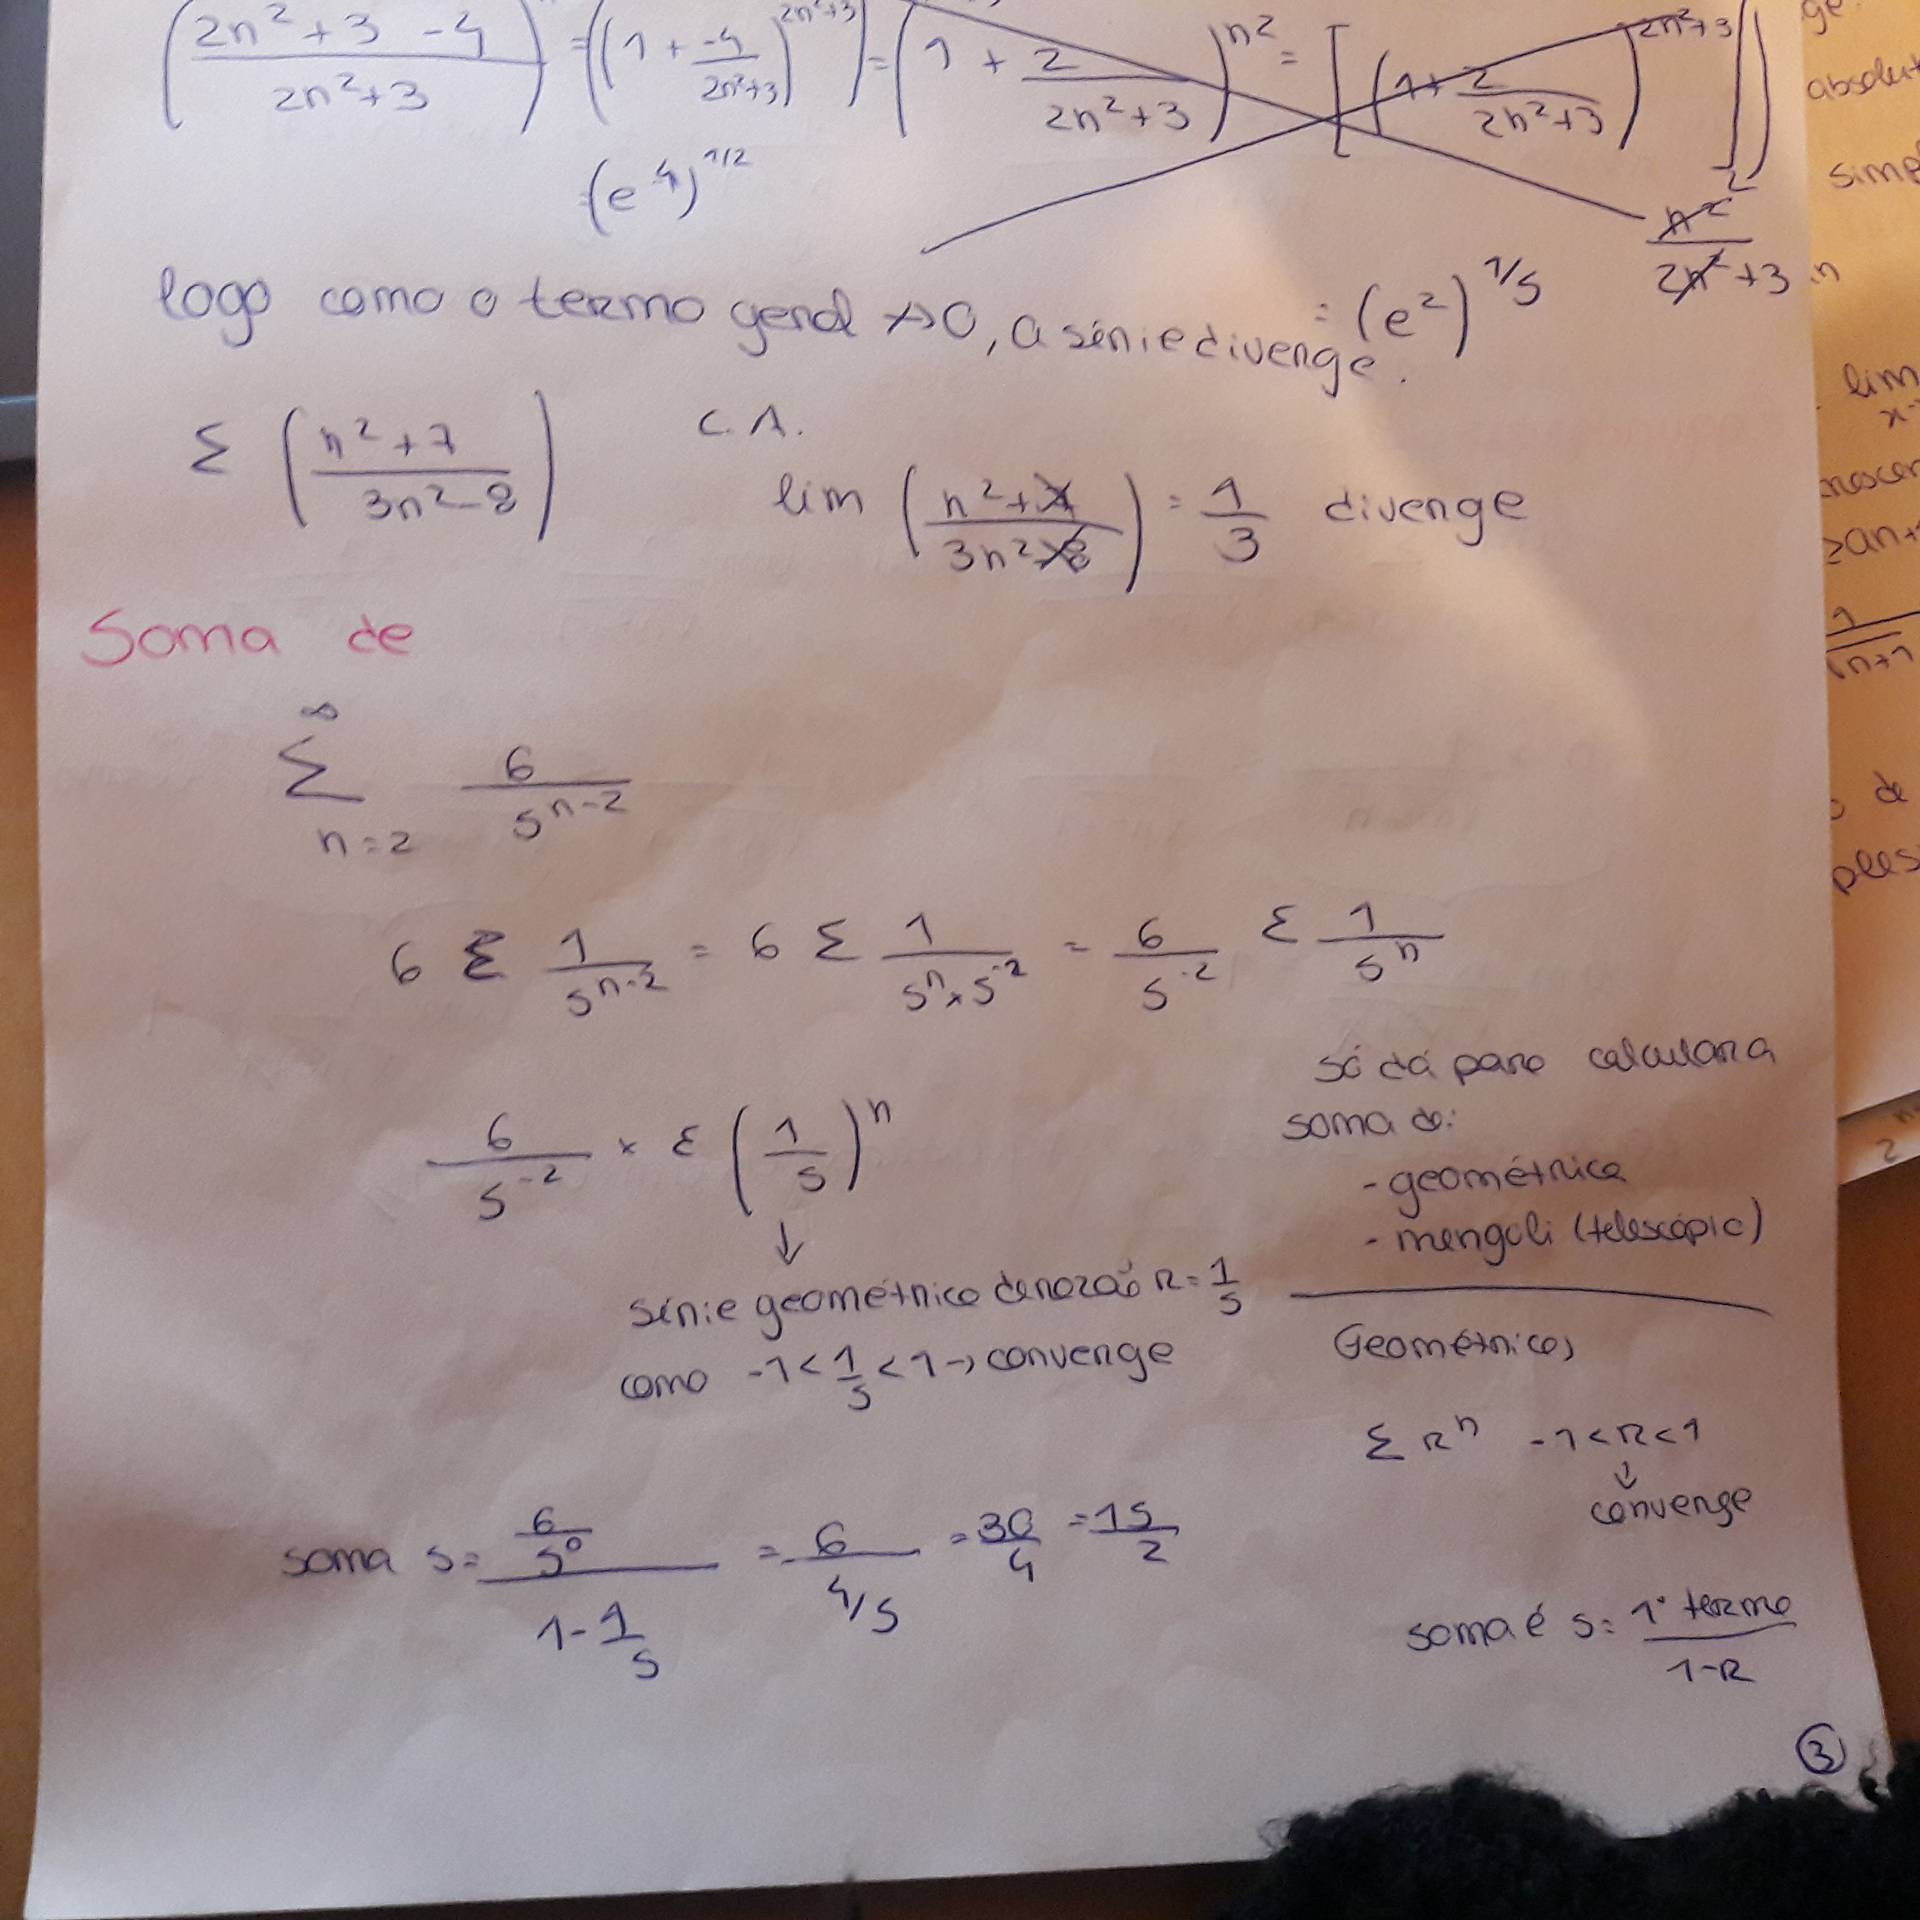 (2n²+3-4 / 2n²+3) = ((1 + -4/2n²+3)^2n²+3) = (1 + 2/2n²+3)^n² = [(1 + 2/2n²+3)^2n²+3]
= (e^-4)^1/2
n²/2n²+3
logo como o termo geral ↛ 0, a série diverge.
= (e²)^1/5
Σ (n²+7 / 3n²-8) C.A.
lim (n²+7 / 3n²-8) = 1/3 diverge
Soma de
∞
Σ 6/5^n-2
n=2
6 Σ 1/5^n-2 = 6 Σ 1/5^n×5^-2 = 6/5^-2 Σ 1/5^n
6/5^-2 × Σ (1/5)^n
↓
série geométrica de razão R = 1/5
como -1 < 1/5 < 1 → converge
soma s = (6/5^0)/(1 - 1/5) = 6/(4/5) = 30/4 = 15/2
só dá para calcular a
soma de:
- geométrica
- mengoli (telescópic)
Geométricas
Σ R^n -1 < R < 1
↓
converge
soma é s = 1º termo / 1-R
3
absolut
simp
lim
x→
de
ples
1/√n+1